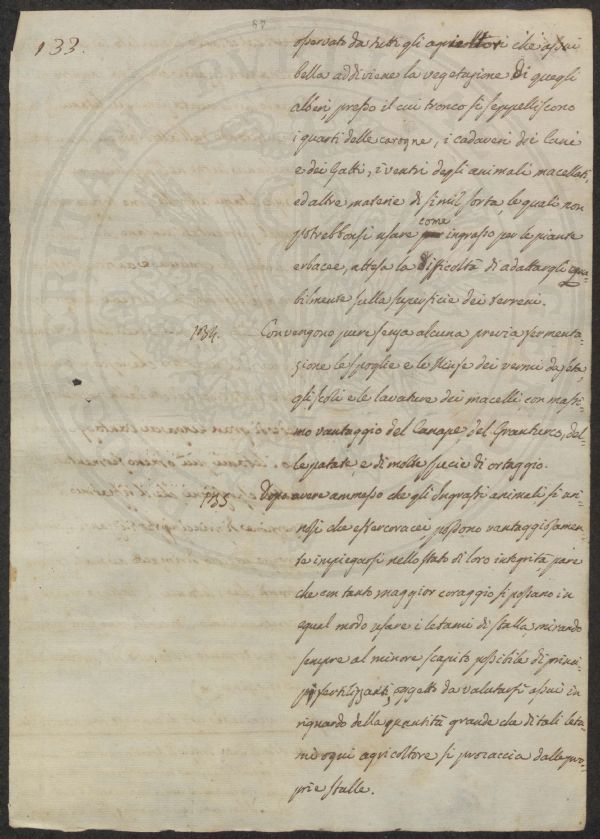 133.
osservato da tutti gli agricoltori che assai
bella addiviene la vegetazione di quegli
alberi presso il cui tronco si seppelliscono
i quarti delle carogne, i cadaveri dei Cani
e dei Gatti, i ventri degli animali macellati,
ed altre materie di simil sorta, le quali non
potrebbonsi usare come ingrasso per le piante
erbacee, attesa la difficoltà di adattargli equa-
bilmente sulla superficie dei terreni.
134. Convengono pure senza alcuna previa fermenta-
zione le spoglie e le ninfe dei vermi da seta,
gli scoli e le lavature dei macelli con massi-
mo vantaggio del Canape, del Granturco, del-
le patate, e di molte specie di ortaggio.
135 Dopo avere ammesso che gl'Ingrassi animali sì uri-
nosi che estercoracei possono vantaggiosamen-
te impiegarsi nello stato di loro integrità, pare
che con tanto maggior coraggio si possano in
egual modo usare i letami di stalla, mirando
sempre al minore scapito possibile di princi-
pj fertilizzanti, oggetto da valutarsi assai in
riguardo della quantità grande che di tali leta-
mi ogni agricoltore si procaccia dalle pro-
prie stalle.